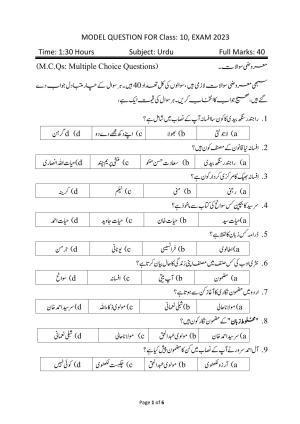 MODEL QUESTION FOR Class: 10, EXAM 2023
Time: 1:30 Hours Subject: Urdu Full Marks: 40
(M.C.Qs: Multiple Choice Questions) معروضی سوالات۔
سبھی معروضی سوالات لازمی ہیں، سوالوں کی کل تعداد 40 ہیں۔ ہر سوال کے چار متبادل جواب دیے
گئے ہیں، صحیح جواب کا انتخاب کریں۔ ہر سوال کی قیمت ایک ہے۔
1. راجندر سنگھ بیدی کا کون سا افسانہ آپ کے نصاب میں شامل ہے؟
a) لاجونتی b) بھولا c) اپنے دکھ مجھے دے دو d) گرہن
2. افسانہ نیا قانون کے مصنف کون ہیں؟
a) راجندر سنگھ بیدی b) سعادت حسن منٹو c) منشی پریم چند d) حیات اللہ انصاری
3. افسانہ بھیک کا مرکزی کردار کون ہے؟
a) رجنی b) منی c) نیلم d) کرینہ
4. سرسید کا بچپن کس سوانح کی کتاب سے ماخوذ ہے؟
a) حیات سید b) حیات خان c) حیات جاوید d) حیات احمد
5. ڈراما کس زبان کا لفظ ہے؟
a) اطالوی b) فرانسیسی c) یونانی d) جرمن
6. نثری ادب کی کس صنف میں مصنف اپنی زندگی کا حال بیان کرتا ہے؟
a) مضمون b) آپ بیتی c) افسانہ d) سوانح
7. اردو میں مضمون نگاری کا آغاز کس سے ہوتا ہے؟
a) مولانا حالی b) شبلی نعمانی c) مولوی ذکاء اللہ d) سرسید احمد خان
8. "مخلوط زبان" کے مضمون نگار کون ہیں؟
a) سرسید احمد خان b) مولوی عبدالحق c) مولانا حالی d) شبلی نعمانی
9. آل احمد سرور نے آپ کے نصاب میں کس کا مضمون پیش کیا ہے؟
a) آرزو لکھنوی b) مولوی عبدالحق c) چکبست لکھنوی d) کوئی نہیں
Page 1 of 6